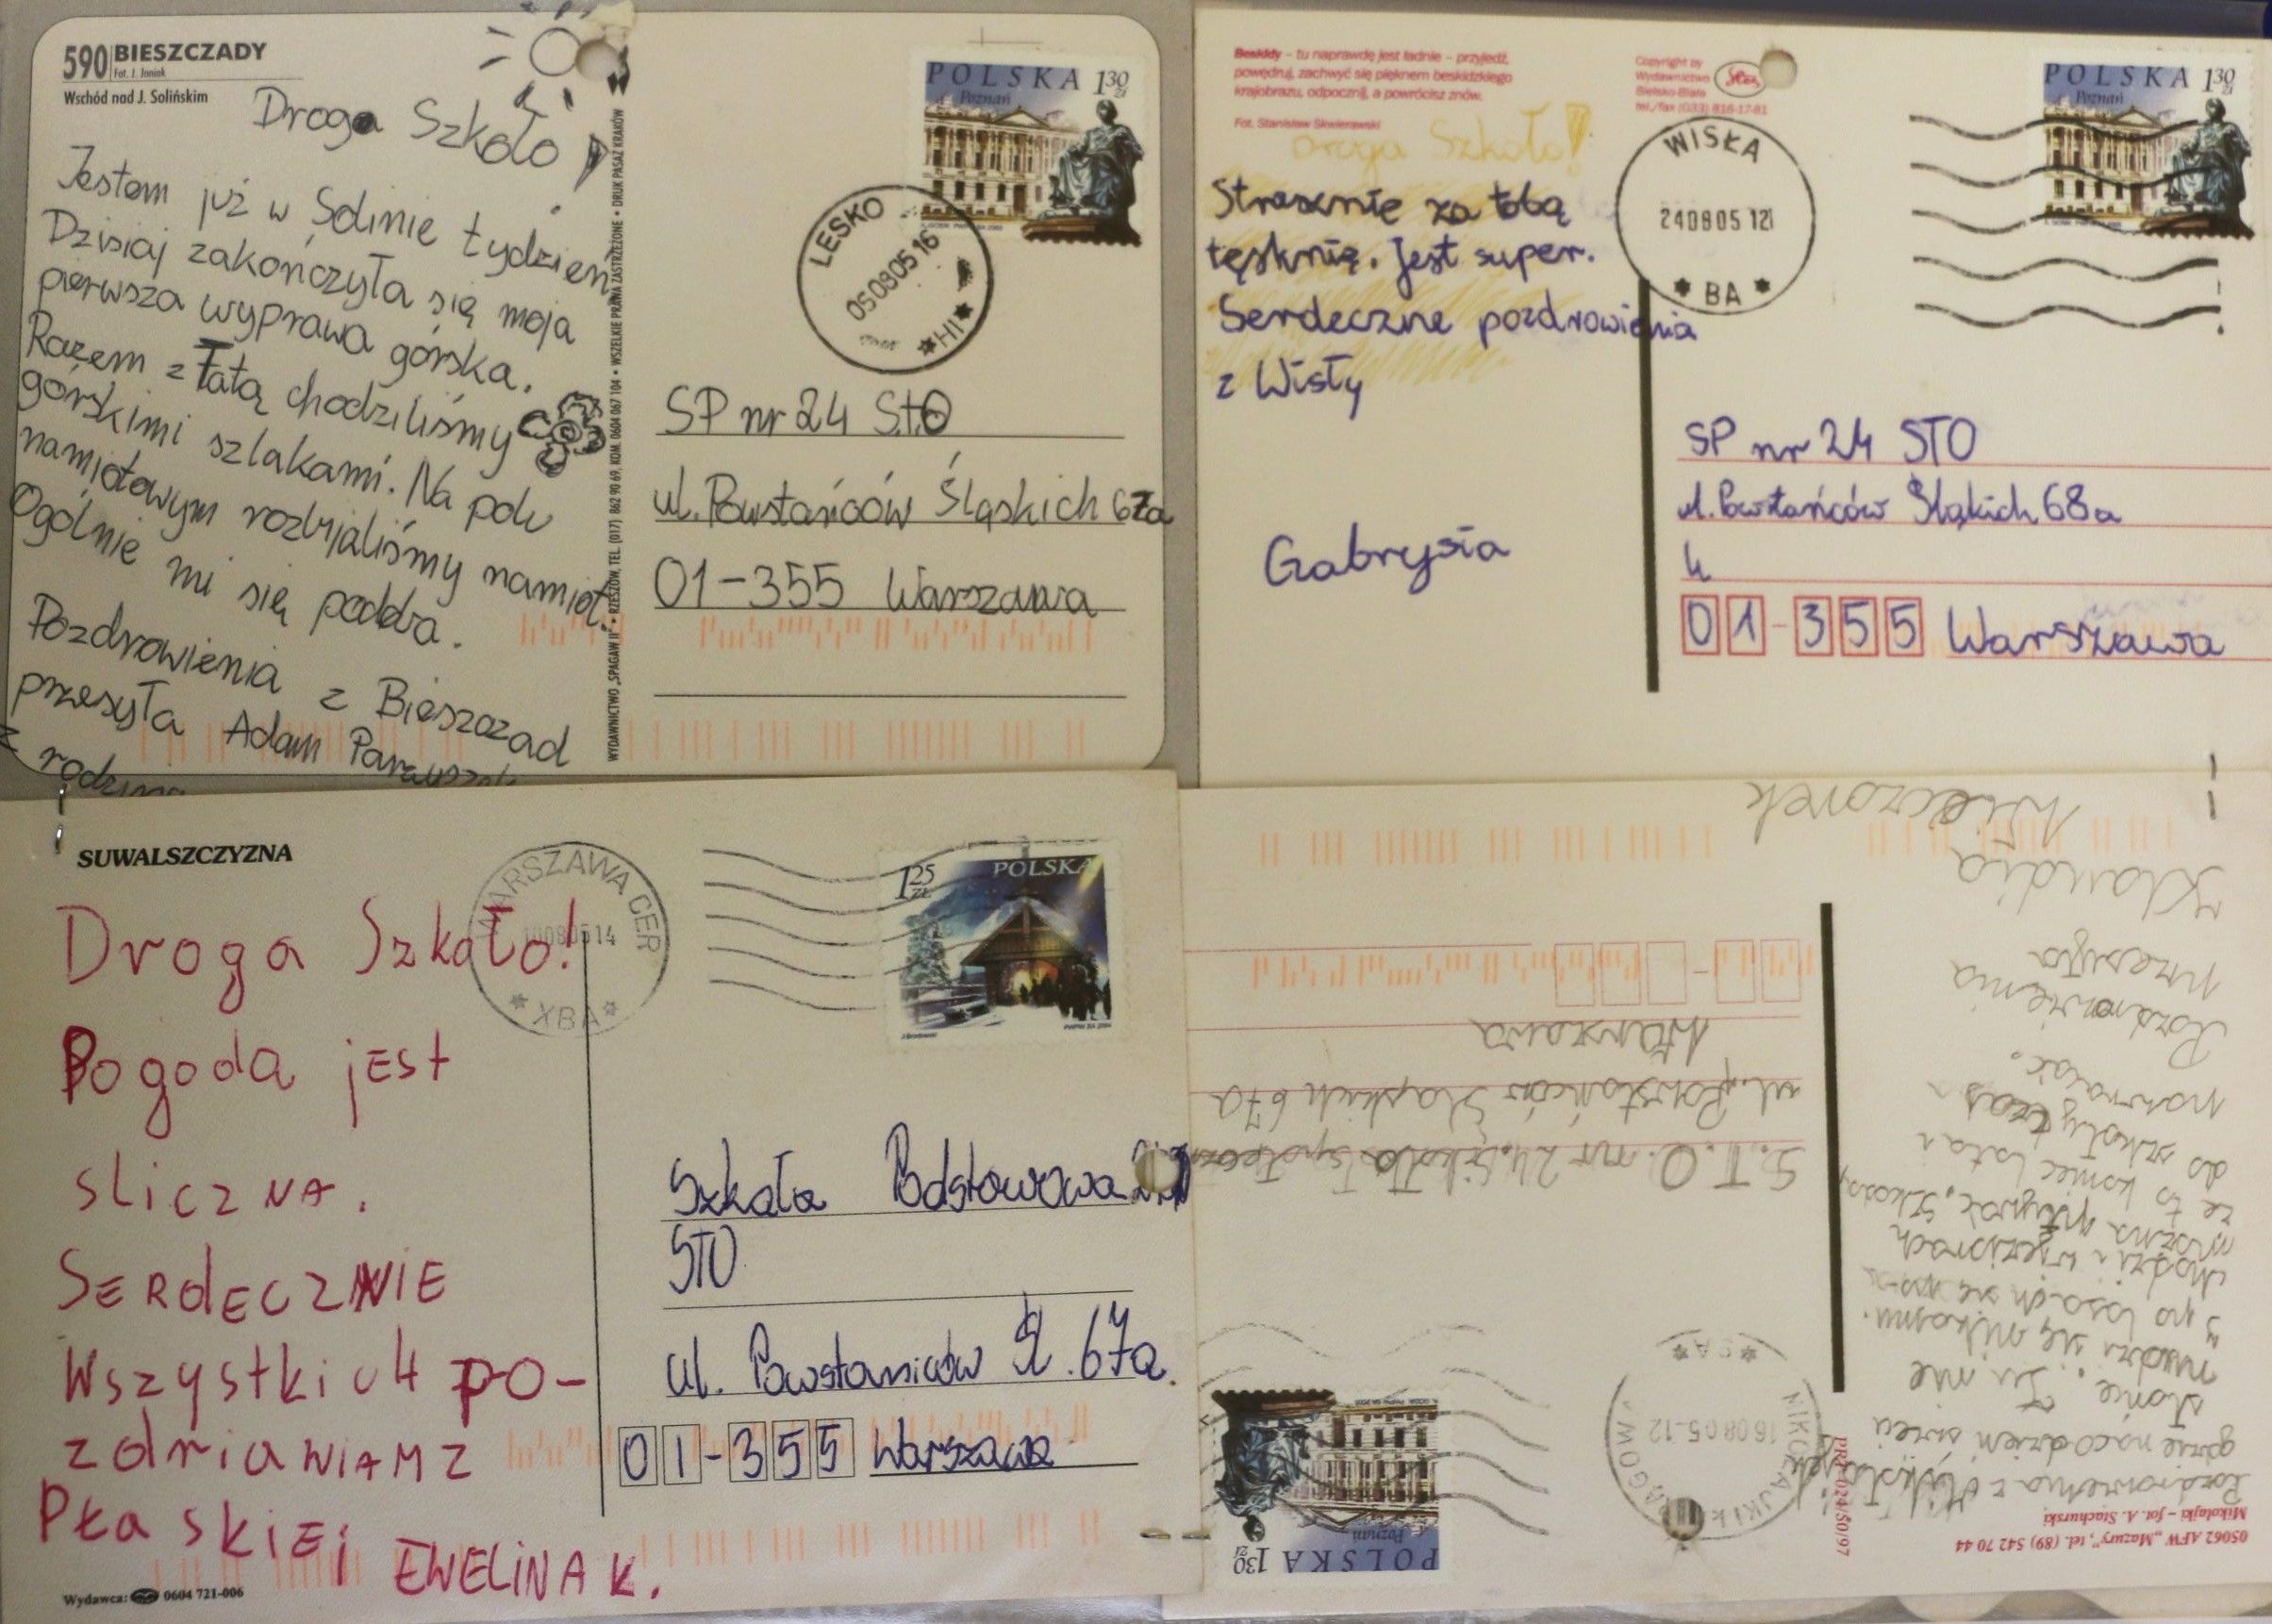 590 BIESZCZADY
Fot. J. Joniak
Wschód nad J. Solińskim
Droga Szkoło!
Jestem już w Solinie tydzień.
Dzisiaj zakończyła się moja
pierwsza wyprawa górska.
Razem z Tatą chodziliśmy
górskimi szlakami. Na polu
namiotowym rozbijaliśmy namiot.
Ogólnie mi się podoba.
Pozdrowienia z Bieszczad
przesyła Adam
z rodziną
WYDAWNICTWO „SPAGAW II" • RZESZÓW, TEL. (017) 862 90 69, KOM. 0604 067 104 • WSZELKIE PRAWA ZASTRZEŻONE • DRUK PASAŻ KRAKÓW
POLSKA 1,30 zł
Poznań
LESKO
050805 16
* HI *
SP nr 24 STO
ul. Powstańców Śląskich 67a
01-355 Warszawa
Beskidy – tu naprawdę jest ładnie – przyjedź,
powędruj, zachwyć się pięknem beskidzkiego
krajobrazu, odpocznij, a powrócisz znów.
Fot. Stanisław Skwierawski
Copyright by
Wydawnictwo
Bielsko-Biała
tel./fax (033) 816-17-81
Droga Szkoło!
Strasznie za tobą
tęsknię. Jest super.
Serdeczne pozdrowienia
z Wisły
Gabrysia
WISŁA
240805 12
* BA *
POLSKA 1,30 zł
Poznań
SP nr 24 STO
ul. Powstańców Śląkich 68a
4
01-355 Warszawa
SUWALSZCZYZNA
Droga Szkoło!
Pogoda jest
śliczna.
SERdECZNIE
Wszystkich po-
zdriawiAM z
PŁaskiEj EWELiNA K.
Wydawca: 0604 721-006
WARSZAWA CER
100805 14
* XBA *
1,25 ZŁ POLSKA
Szkoła Podstawowa
STO
ul. Powstańców Śl. 67a.
01-355 Warszawa
05062 AFW „Mazury", tel. (89) 542 70 44
Mikołajki – fot. A. Stachurski
Pozdrowienia z
gdzie na co dzień świeci
słońce. Tu nie
nudzi się nikomu.
po lasach się
chodzi i w jeziorach
można pływać. Szkoda,
że to koniec lata i
do szkoły czas
powracać.
Pozdrowienia
przesyła
Klaudia
Wieczorek
PR2-024/50/97
MIKOŁAJKI k. MRĄGOWA
160805-12
POLSKA 1,30 zł
Poznań
S.T.O. nr 24. Szkoła
ul. Powstańców Śląskich 67a
Warszawa